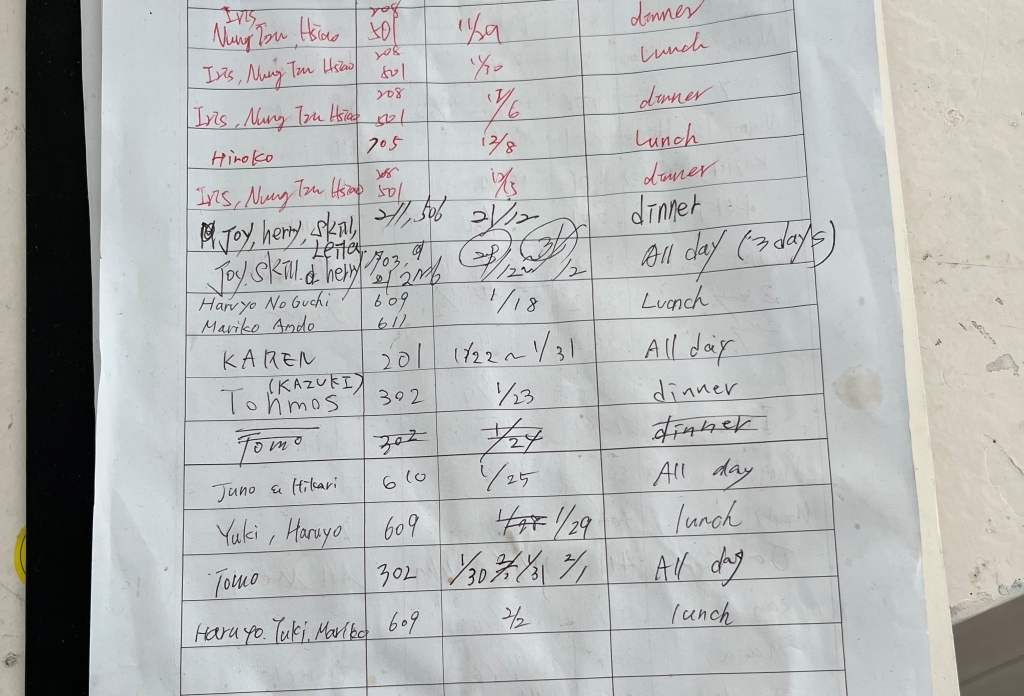 Iris, 208 dinner
Nung Tzu, Hsiao 501 11/29
Iris, Nung Tzu Hsiao 208 501 11/30 Lunch
Iris, Nung Tzu Hsiao 208 501 12/6 dinner
Hiroko 705 12/8 Lunch
Iris, Nung Tzu Hsiao 208 501 dinner
Joy, herry, skill, 211, 506 21/12 dinner
Leila
Joy. skill. herry All day (3 days)
Haruyo Noguchi 609 1/18 Luonch
Mariko Ando 611
KAREN 201 1/22 ~ 1/31 All day
(KAZUKI)
Tohmos 302 1/23 dinner
Tomo 302 1/24 dinner
Juno & Hikari 610 1/25 All day
Yuki, Haruyo 609 1/29 lunch
Tomo 302 1/30 1/31 2/1 All day
Haruyo. Yuki. Mariko 609 2/2 lunch